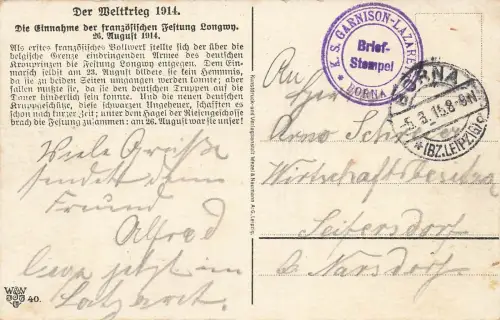 Der Weltkrieg 1914.
Die Einnahme der französischen Festung Longwy.
26. August 1914.
Als erstes französisches Bollwerk stellte sich der über die
belgische Grenze eindringenden Armee des deutschen
Kronprinzen die Festung Longwy entgegen. Dem Ein-
marsch selbst am 23. August bildete sie kein Hemmnis,
da sie zu beiden Seiten umgangen werden konnte; aber
fallen mußte sie, da sie den deutschen Truppen auf die
Dauer hinderlich sein konnte. Und die neuen deutschen
Kruppgeschütze, diese schwarzen Ungeheuer, schafften es
schon nach kurzer Zeit; unter dem Hagel der Riesengeschosse
brach die Festung zusammen: am 26. August war sie unser!
Viele Grüße
sendet dein
Freund
Alfred
liege jetzt im
Lazarett.
W&N
40.
K. S. GARNISON-LAZARE
Brief-
Stempel
BORNA
BORNA
-5.3.15.8-9N
*(BZ. LEIPZIG)
An
Herr
Arno
Wirtschaftsbesitzer
Seifersdorf
b. Narsdorf